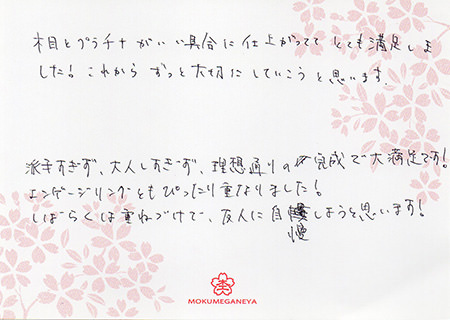 木目とプラチナがいい具合に仕上がってて とても満足しま
した！これから ずっと大切にしていこうと思います.
派手すぎず、大人しすぎず、理想通りの完成で大満足です！
エンゲージリングともぴったり重なりました！
しばらくは重ねづけで、友人に自慢しようと思います！
MOKUMEGANEYA